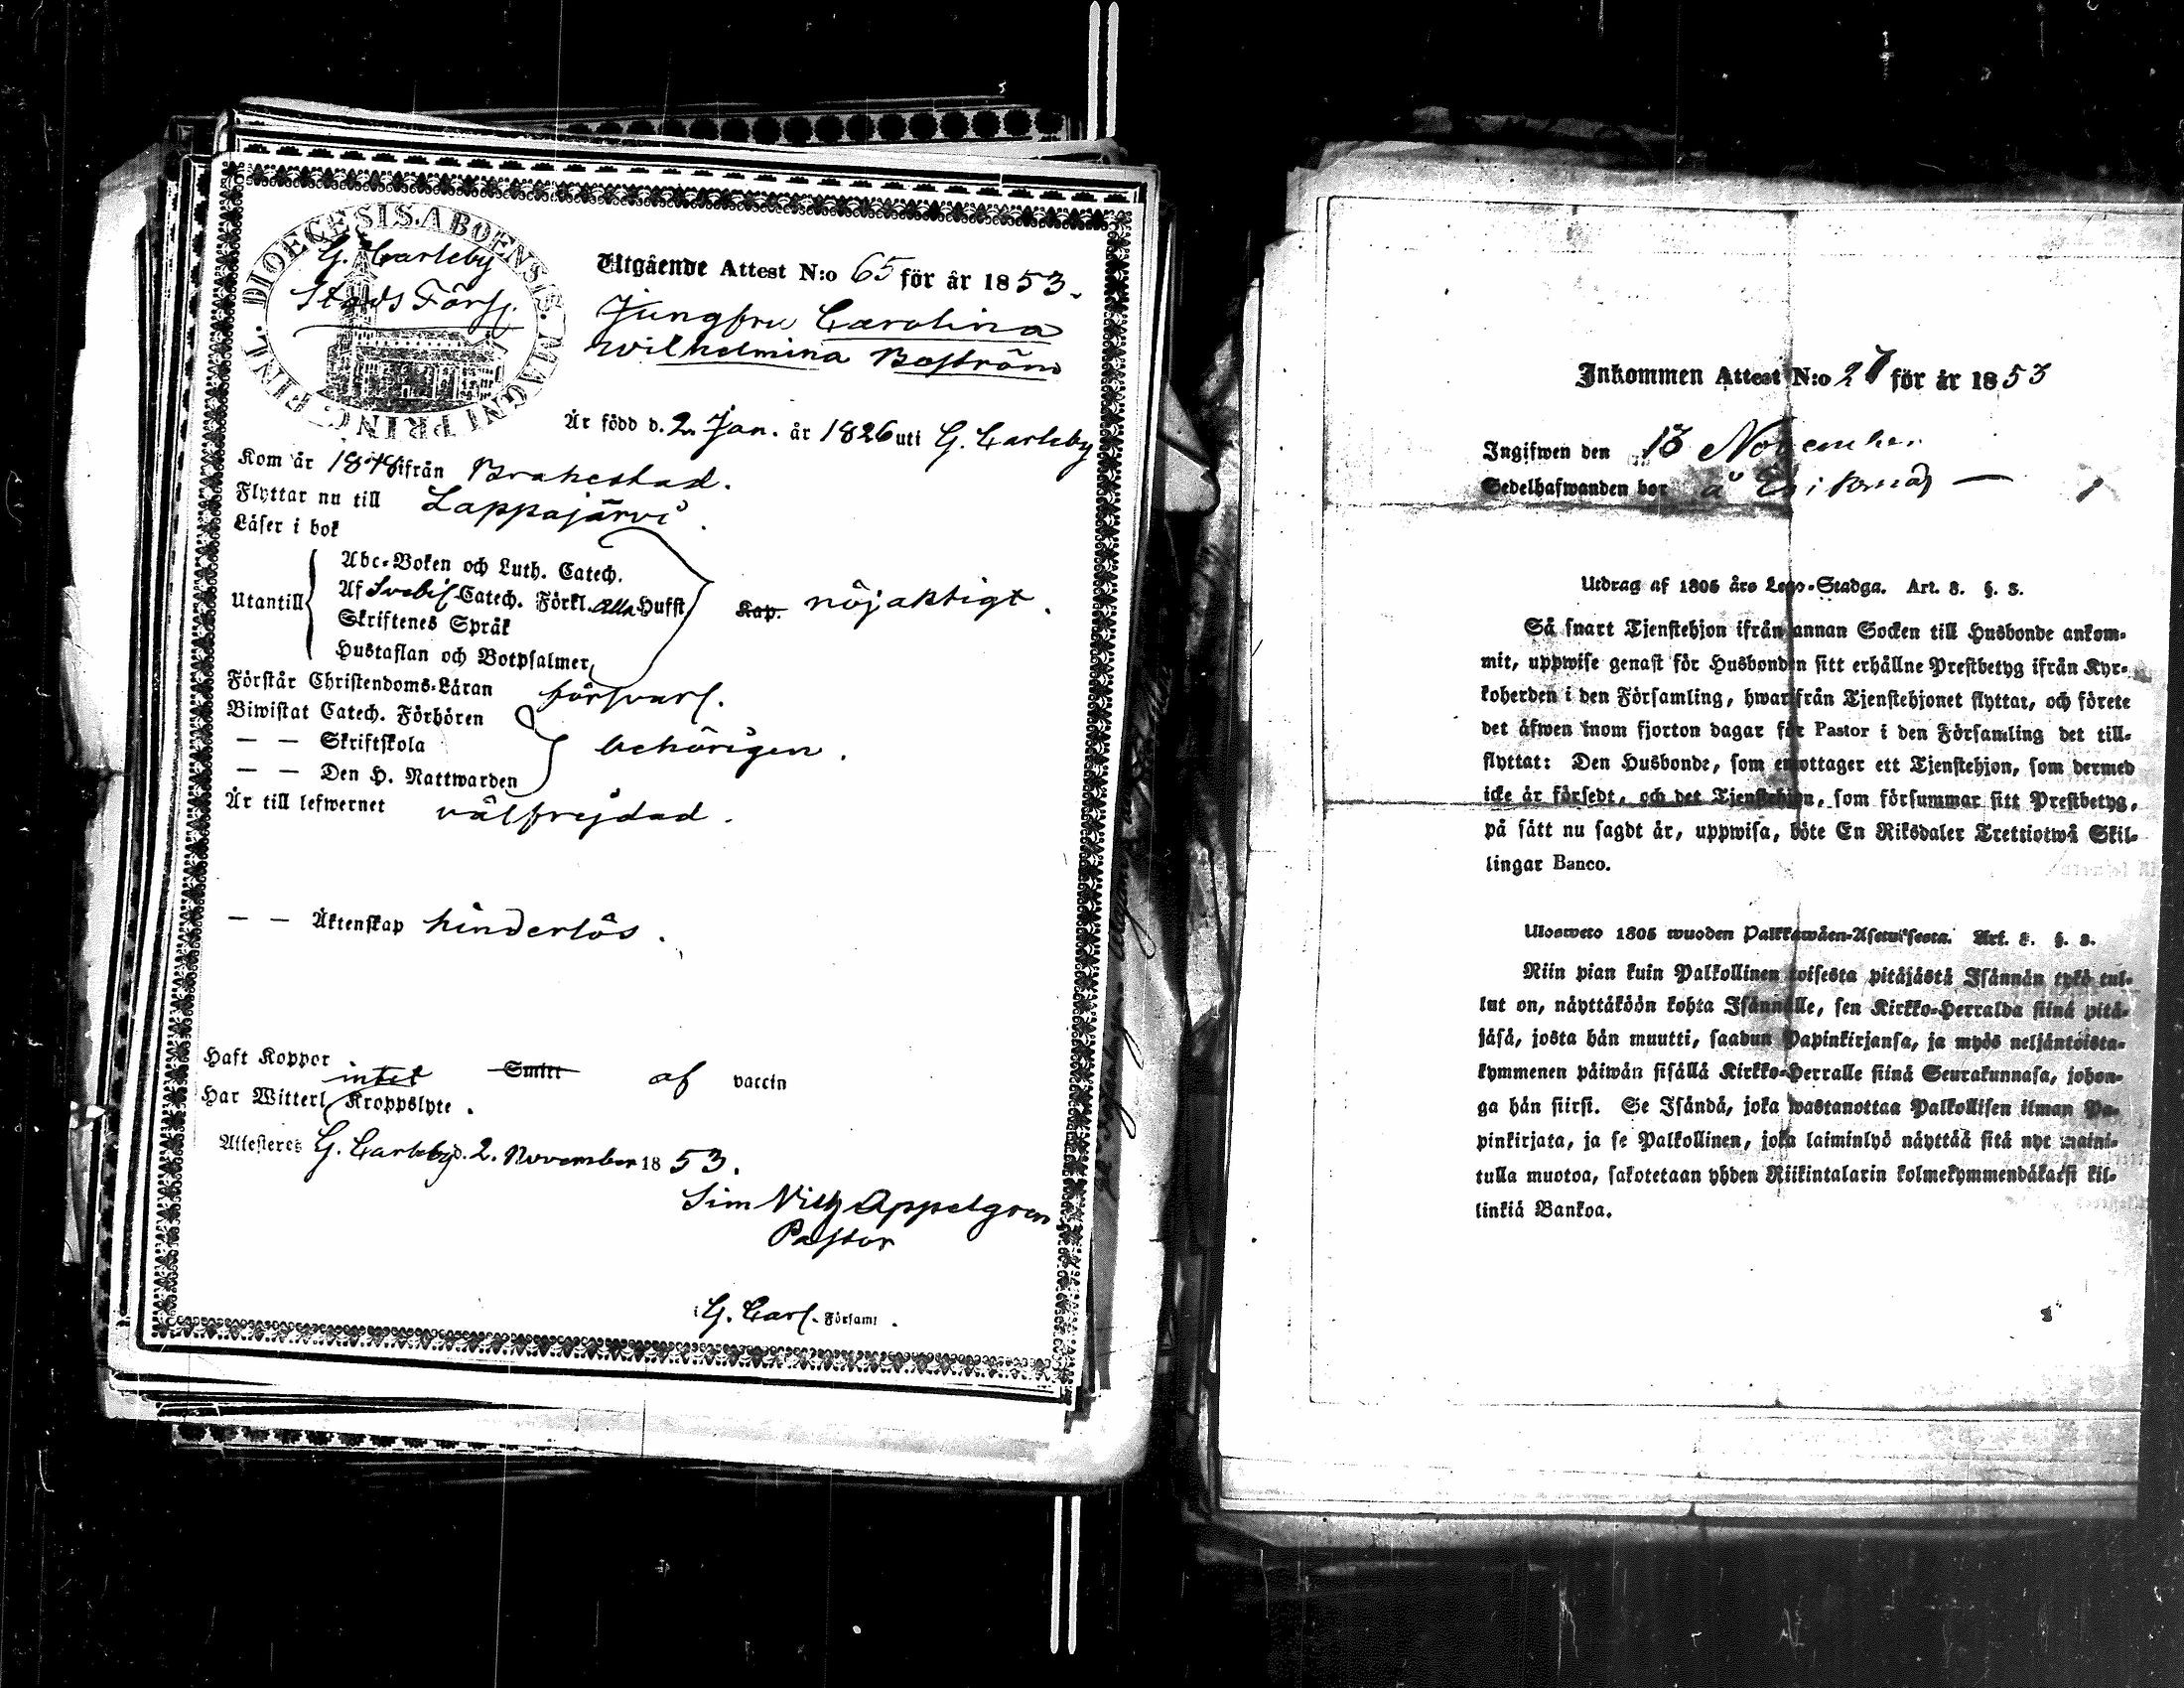 DIOECESIS. ABOENSIS. MAGNI PRINC. FINL.
G. Carleby
Stads Förs.
Utgående Attest N:o 65 för år 1853.
Jungfru Carolina
Wilhelmina Boström
Är född d. 2. Jan. år 1826 uti G. Carleby
Kom år 1848 ifrån Brahestad.
Flyttar nu till Lappajärvi.
Läser i bok
Utantill
Abc-Boken och Luth. Catech.
Af Svebil. Catech. Förkl. alla Hufst.
Skriftenes Språk
Hustaflan och Botpsalmer
Kap. nöjaktigt.
Förstår Christendoms-Läran försvarl.
Biwistat Catech. Förhören
— — Skriftskola
— — Den H. Nattwarden
behörigen.
Är till lefwernet välfrejdad.
— — Äktenskap hinderlös.
Haft Koppor Smitt af vaccin
Har Witterl. intet Kroppslyte.
Attesteres G. Carleby d. 2. November 1853.
Sim Vilh Appelgren
Pastor
i G. Carl. Församl.
Inkommen Attest N:o 27 för år 1853
Ingifwen den 13 November
Sedelhafwanden bor å
Utdrag af 1805 års Lego-Stadga. Art. 8. §. 3.
Så snart Tjenstehjon ifrån annan Socken till Husbonde ankom-
mit, uppwise genast för Husbonden sitt erhållne Prestbetyg ifrån Kyr-
koherden i den Församling, hwarifrån Tjenstehjonet flyttat, och förete
det äfwen inom fjorton dagar för Pastor i den Församling det till-
flyttat: Den Husbonde, som emottager ett Tjenstehjon, som dermed
icke är försedt, och det Tjenstehjon, som försummar sitt Prestbetyg,
på sätt nu sagdt är, uppwisa, böte En Riksdaler Trettiotwå Skil-
lingar Banco.
Ulosweto 1805 wuoden Palkkawäen-Asetuksesta. Art. 8. §. 3.
Niin pian kuin Palkollinen toisesta pitäjästä Isännän tykö tul-
lut on, näyttäköön kohta Isännälle, sen Kirkko-Herralda siinä pitä-
jäsä, josta hän muutti, saadun Papinkirjansa, ja myös neljäntoista-
kymmenen päiwän sisällä Kirkko-Herralle siinä Seurakunnasa, johon-
ga hän siirsi. Se Isändä, joka wastanottaa Palkollisen ilman Pa-
pinkirjata, ja se Palkollinen, joka laiminlyö näyttää sitä nyt maini-
tulla muotoa, sakotetaan yhden Riikintalarin kolmekymmendäkaksi kil-
linkiä Bankoa.